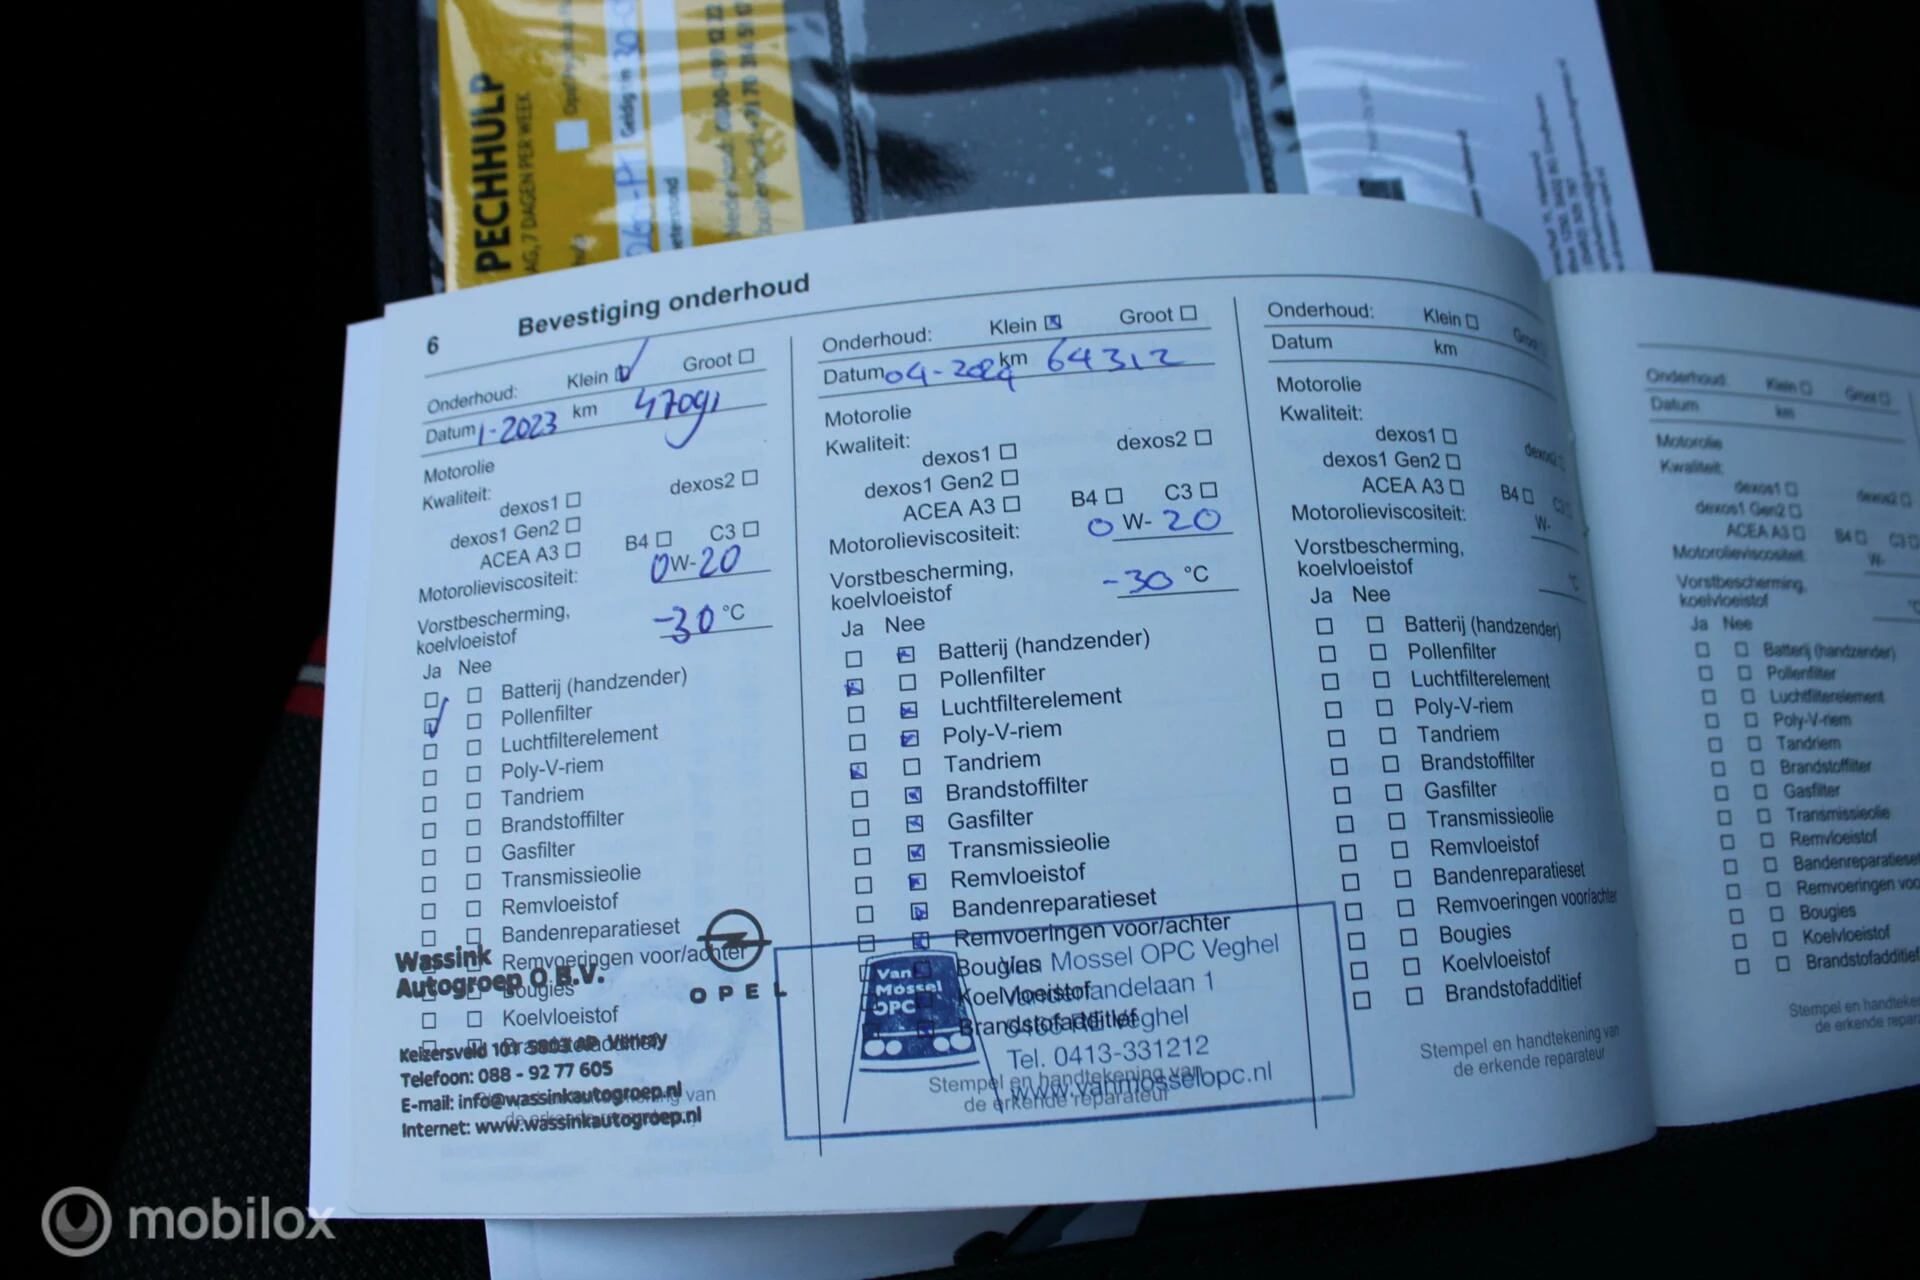 PECHHULP
AG, 7 DAGEN PER WEEK
Geldig t/m 30-
6 Bevestiging onderhoud
Onderhoud: Klein Groot
Datum 1-2023 km 47091
Motorolie
Kwaliteit:
dexos1 dexos2
dexos1 Gen2
ACEA A3 B4 C3
Motorolieviscositeit: 0W-20
Vorstbescherming,
koelvloeistof -30 °C
Ja Nee
Batterij (handzender)
Pollenfilter
Luchtfilterelement
Poly-V-riem
Tandriem
Brandstoffilter
Gasfilter
Transmissieolie
Remvloeistof
Bandenreparatieset
Remvoeringen voor/achter
Bougies
Koelvloeistof
Wassink
Autogroep O B.V.
OPEL
Keizersveld 101 5803 AP Venray
Telefoon: 088 - 92 77 605
E-mail: info@wassinkautogroep.nl
Internet: www.wassinkautogroep.nl
Onderhoud: Klein Groot
Datum 04-2024 km 64312
Motorolie
Kwaliteit:
dexos1 dexos2
dexos1 Gen2
ACEA A3 B4 C3
Motorolieviscositeit: 0 W- 20
Vorstbescherming,
koelvloeistof -30 °C
Ja Nee
Batterij (handzender)
Pollenfilter
Luchtfilterelement
Poly-V-riem
Tandriem
Brandstoffilter
Gasfilter
Transmissieolie
Remvloeistof
Bandenreparatieset
Remvoeringen voor/achter
Bougies
Koelvloeistof
Brandstofadditief
Stempel en handtekening van
de erkende reparateur
Van
Mossel
OPC
Van Mossel OPC Veghel
Tel. 0413-331212
www.vanmosselopc.nl
Onderhoud: Klein Groot
Datum km
Motorolie
Kwaliteit:
dexos1 dexos2
dexos1 Gen2
ACEA A3 B4 C3
Motorolieviscositeit: W-
Vorstbescherming,
koelvloeistof °C
Ja Nee
Batterij (handzender)
Pollenfilter
Luchtfilterelement
Poly-V-riem
Tandriem
Brandstoffilter
Gasfilter
Transmissieolie
Remvloeistof
Bandenreparatieset
Remvoeringen voor/achter
Bougies
Koelvloeistof
Brandstofadditief
Stempel en handtekening van
de erkende reparateur
Onderhoud: Klein Groot
Datum km
Motorolie
Kwaliteit:
dexos1 dexos2
dexos1 Gen2
ACEA A3 B4 C3
Motorolieviscositeit: W-
Vorstbescherming,
koelvloeistof °C
Ja Nee
Batterij (handzender)
Pollenfilter
Luchtfilterelement
Poly-V-riem
Tandriem
Brandstoffilter
Gasfilter
Transmissieolie
Remvloeistof
Bandenreparatieset
Remvoeringen voo
Bougies
Koelvloeistof
Brandstofadditief
Stempel en handteken
de erkende repara
mobilox